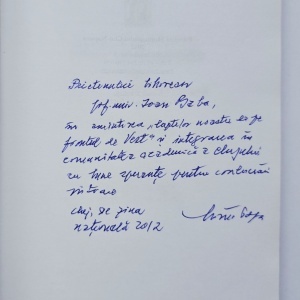 Prietenului
prof. univ. Ioan Bzba,
în amintirea „luptelor noastre de pe
frontul de Vest” și integrarea în
comunitatea academică a Clujului
cu bune speranțe pentru conlucrări
viitoare
Cluj, de ziua
națională 2012